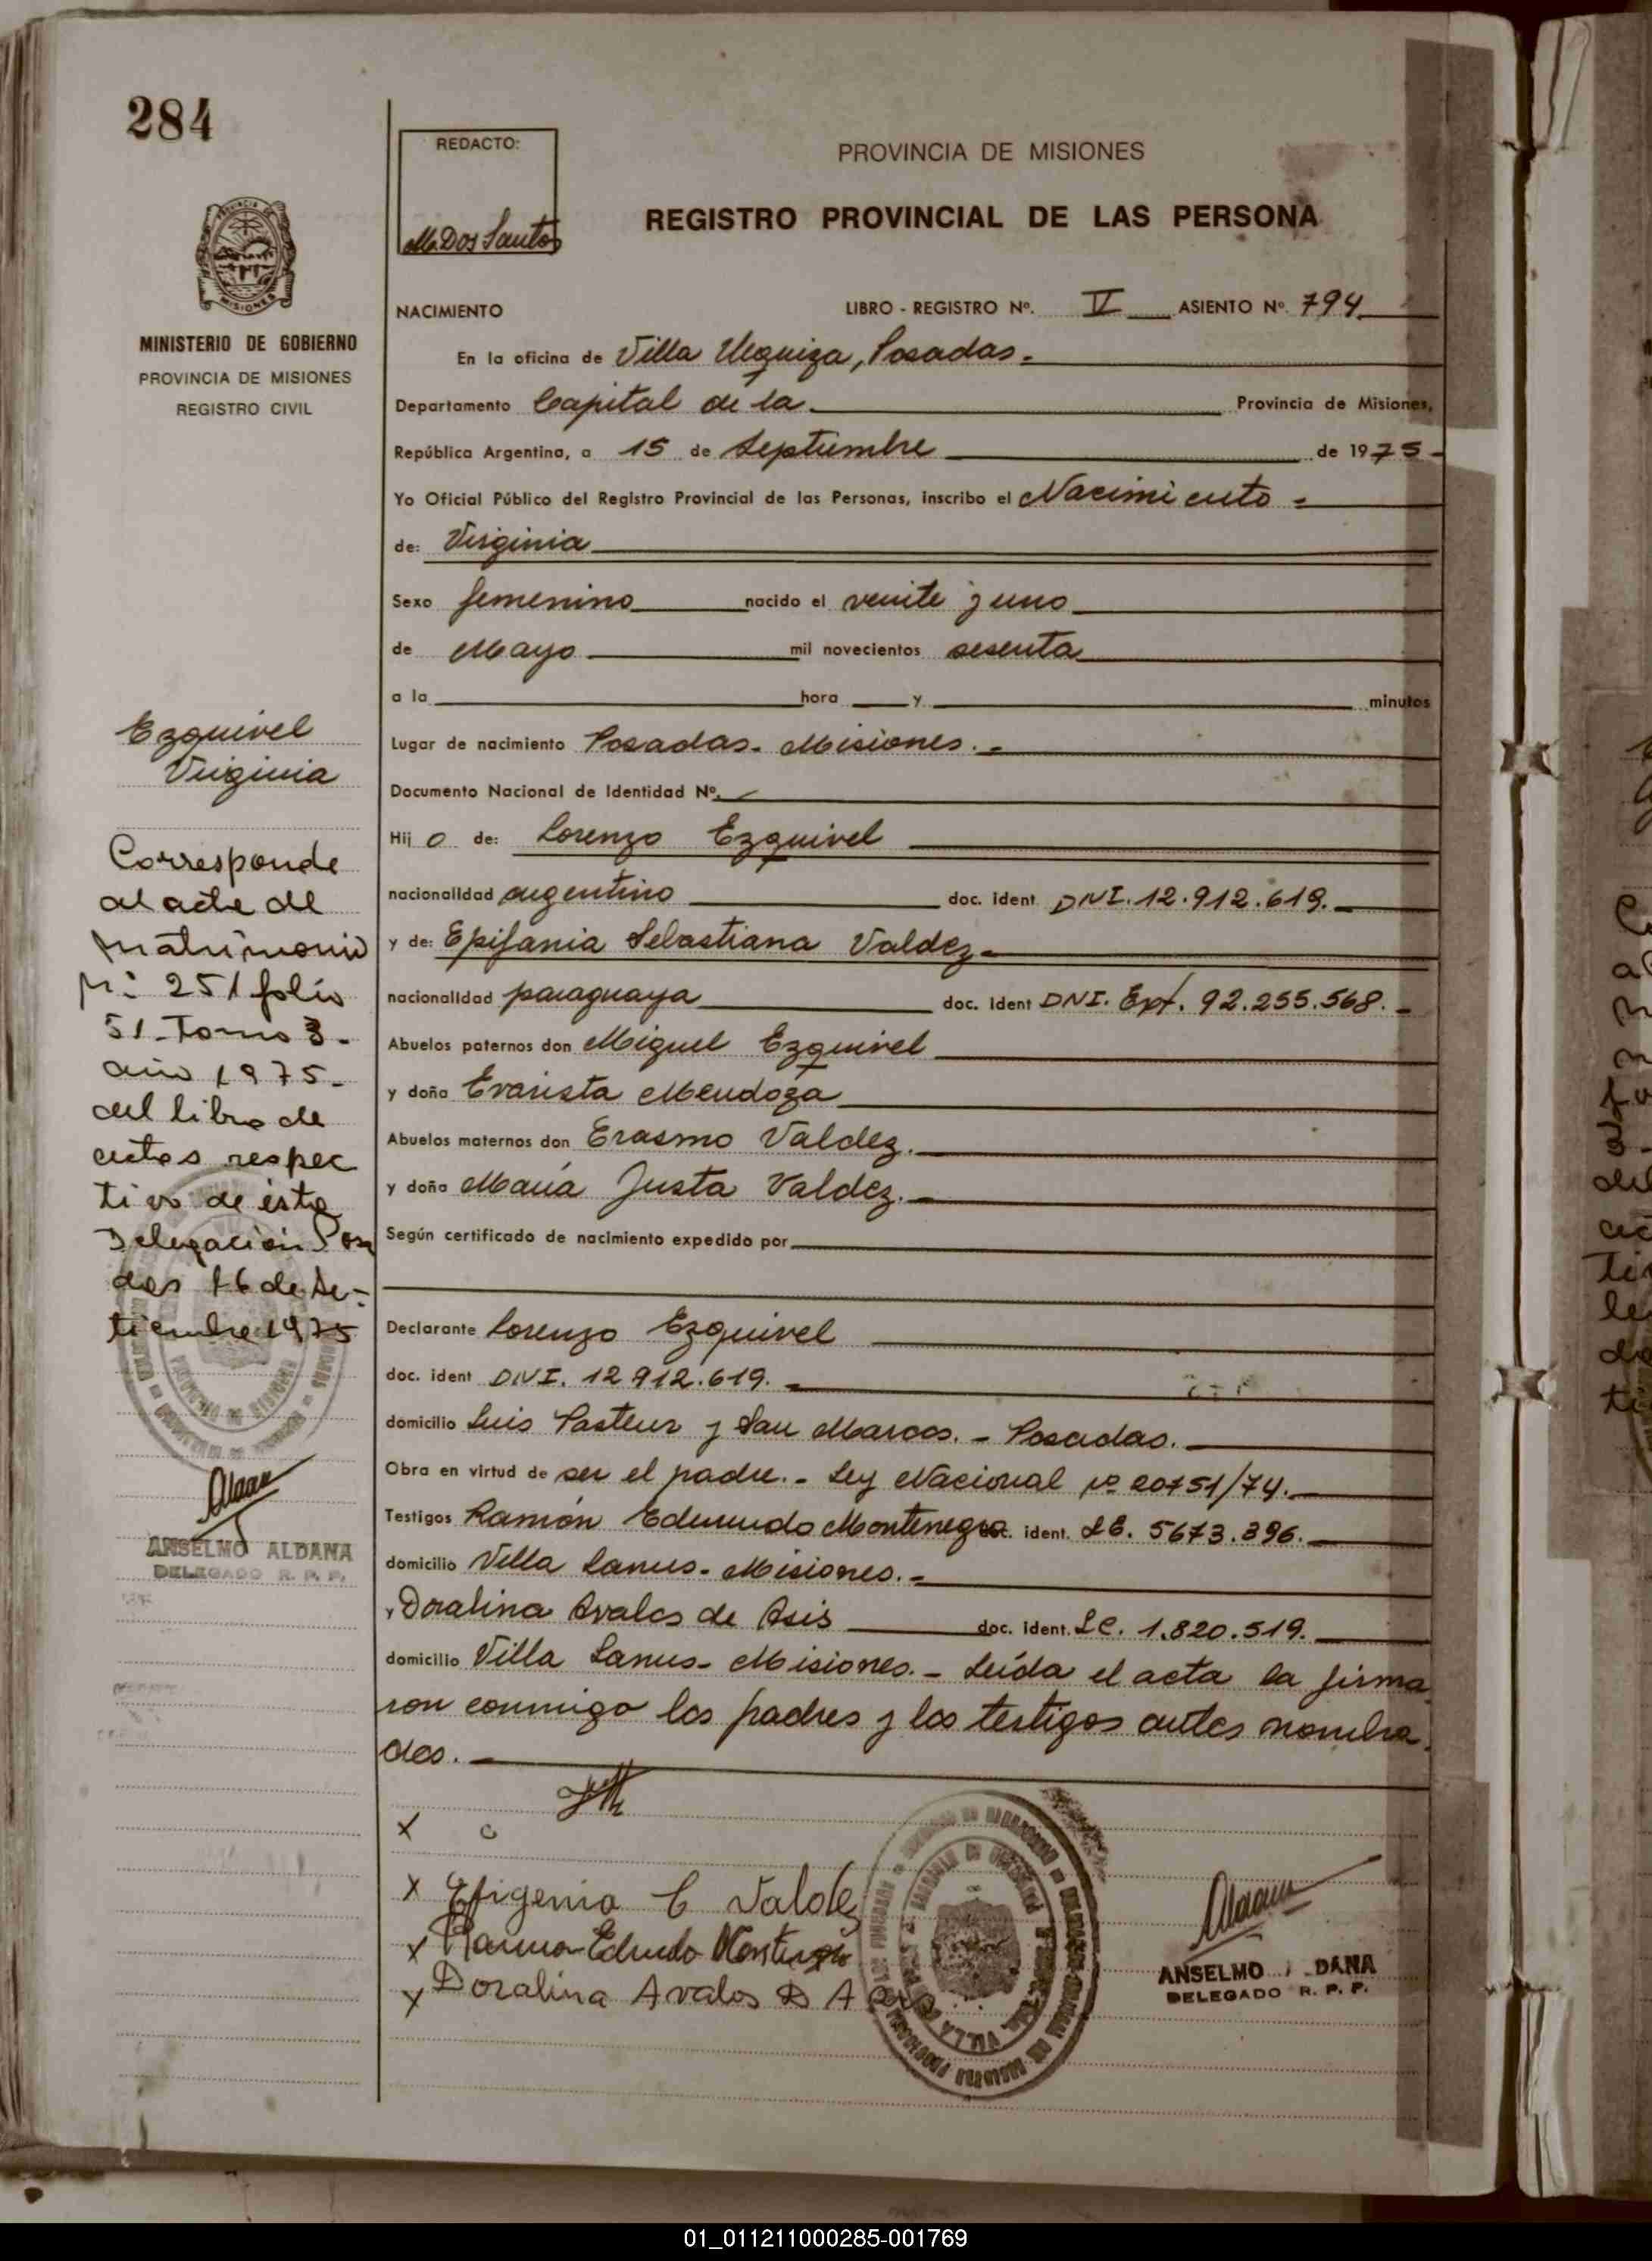 284
REDACTO:
M. Dos Santos
PROVINCIA DE MISIONES
REGISTRO PROVINCIAL DE LAS PERSONA
MINISTERIO DE GOBIERNO
PROVINCIA DE MISIONES
REGISTRO CIVIL
NACIMIENTO LIBRO - REGISTRO Nº. V ASIENTO Nº. 794
En la oficina de Villa Urquiza, Posadas.-
Departamento Capital de la Provincia de Misiones,
República Argentina, a 15 de Septiembre de 1975-
Yo Oficial Público del Registro Provincial de las Personas, inscribo el Nacimiento-
de: Virginia
Sexo femenino nacido el veinte y uno
de Mayo mil novecientos sesenta
a la hora y minutos
Lugar de nacimiento Posadas. Misiones.-
Documento Nacional de Identidad Nº.
Hij o de: Lorenzo Ezquivel
nacionalidad argentino doc. ident DNI. 12.912.619.-
y de: Epifania Sebastiana Valdez-
nacionalidad paraguaya doc. ident DNI. Ext. 92.255.568.-
Abuelos paternos don Miguel Ezquivel
y doña Evarista Mendoza
Abuelos maternos don Erasmo Valdez.-
y doña María Justa Valdez.-
Según certificado de nacimiento expedido por
Declarante Lorenzo Ezquivel
doc. ident DNI. 12.912.619.-
domicilio Luis Pasteur y San Marcos. - Posadas.-
Obra en virtud de ser el padre. - Ley Nacional nº 20751/74.-
Testigos Ramón Edmundo Montenegro doc. ident. LE. 5673.896.-
domicilio Villa Lanus- Misiones.-
y Doralina Avalos de Asis doc. ident. LC. 1.820.519.
domicilio Villa Lanus- Misiones.- Leída el acta la firma
ron conmigo los padres y los testigos antes nombra
dos.-
Ezquivel
Virginia
Corresponde
al acta de
matrimonio
Nº 251 folio
51-Tomo 3-
año 1975-
del libro de
actas respec
tivo de ésta
Delegación Posa
das 16 de Se-
tiembre 1975
ANSELMO ALDANA
DELEGADO R. P. P.
X
X Efigenia C Valdez
X Ramon Edmundo Montenegro
X Doralina Avalos D A
ANSELMO DANA
DELEGADO R. P. P.
01_011211000285-001769